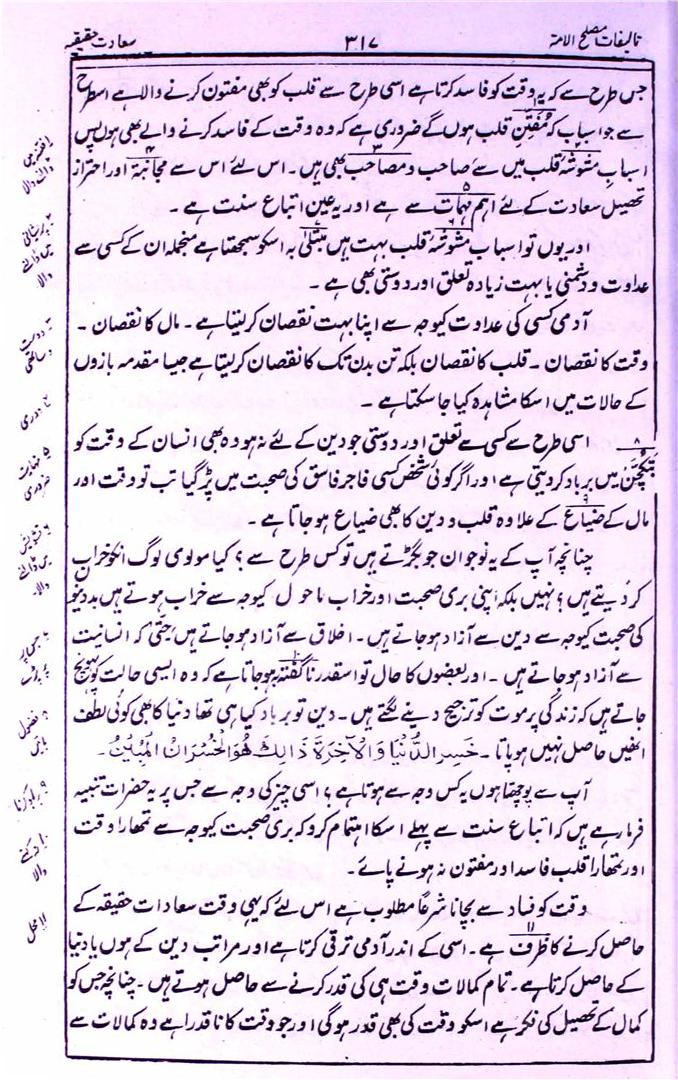 تالیفات مصلح الامۃ ۳۱۷ سعادت حقیقہ
جس طرح سے کہ یہ وقت کو فاسد کرتا ہے اسی طرح سے قلب کو بھی مفتون کرنے والا ہے اسطرح
سے جو اسباب کہ مُفْتِنِ قلب ہوں گے ضروری ہے کہ وہ وقت کے فاسد کرنے والے بھی ہوں پس
اسبابِ مشوشۂ قلب میں سے صاحب و مصاحب بھی ہیں۔ اس لئے اس سے مجانبۃ اور احتراز
تحصیل سعادت کے لئے اہم مہمات سے ہے اور یہ عین اتباع سنت ہے۔
اور یوں تو اسباب مشوشۂ قلب بہت ہیں مبتلیٰ بہ اسکو سمجھتا ہے منجملہ ان کے کسی سے
عداوت و دشمنی یا بہت زیادہ تعلق اور دوستی بھی ہے۔
آدمی کسی کی عداوت کیوجہ سے اپنا بہت نقصان کر لیتا ہے۔ مال کا نقصان۔
وقت کا نقصان۔ قلب کا نقصان بلکہ تن بدن تک کا نقصان کر لیتا ہے جیسا مقدمہ بازوں
کے حالات میں اسکا مشاہدہ کیا جا سکتا ہے۔
اسی طرح سے کسی سے تعلق اور دوستی جو دین کے لئے نہ ہو وہ بھی انسان کے وقت کو
میں برباد کر دیتی ہے اور اگر کوئی شخص کسی فاجر فاسق کی صحبت میں پڑ گیا تب تو وقت اور
مال کے ضیاع کے علاوہ قلب و دین کا بھی ضیاع ہو جاتا ہے۔
چنانچہ آپ کے یہ نوجوان جو بگڑتے ہیں تو کس طرح سے؟ کیا مولوی لوگ انکو خراب
کر دیتے ہیں؟ نہیں بلکہ اپنی بری صحبت اور خراب ماحول کیوجہ سے خراب ہوتے ہیں بددینو
کی صحبت کیوجہ سے دین سے آزاد ہو جاتے ہیں۔ اخلاق سے آزاد ہو جاتے ہیں حتیٰ کہ انسانیت
سے آزاد ہو جاتے ہیں۔ اور بعضوں کا حال تو اسقدر ناگفتہ بہ ہو جاتا ہے کہ وہ ایسی حالت کو پہونچ
جاتے ہیں کہ زندگی پر موت کو ترجیح دینے لگتے ہیں۔ دین تو برباد کیا ہی تھا دنیا کا بھی کوئی لطف
انھیں حاصل نہیں ہو پاتا۔ خَسِرَ الدُّنْیَا وَالْآخِرَۃَ ذَالِکَ ھُوَ الْخُسْرَانُ الْمُبِیْنُ۔
آپ سے پوچھتا ہوں یہ کس وجہ سے ہوتا ہے؟ اسی چیز کی وجہ سے جس پر یہ حضرات تنبیہ
فرما رہے ہیں کہ اتباع سنت سے پہلے اسکا اہتمام کرو کہ بری صحبت کیوجہ سے تمھارا وقت
اور تمھارا قلب فاسد اور مفتون نہ ہونے پائے۔
وقت کو فساد سے بچانا شرعاً مطلوب ہے اس لئے کہ یہی وقت سعادات حقیقہ کے
حاصل کرنے کا ظرف ہے۔ اسی کے اندر آدمی ترقی کرتا ہے اور مراتب دین کے ہوں یا دنیا
کے حاصل کرتا ہے۔ تمام کمالات وقت ہی کی قدر کرنے سے حاصل ہوتے ہیں۔ چنانچہ جس کو
کمال کے تحصیل کی فکر ہے اسکو وقت کی بھی قدر ہوگی اور جو وقت کا ناقدرا ہے وہ کمالات سے
۱ فتنہ میں
ڈالنے والا
۲ پریشانی
میں ڈالنے
والا
۳ دوست
و ساتھی
۴ دوری
۵ نہایت
ضروری
والا
۸ فضول
۹ برباد کرنا
والا
۱۱ محل